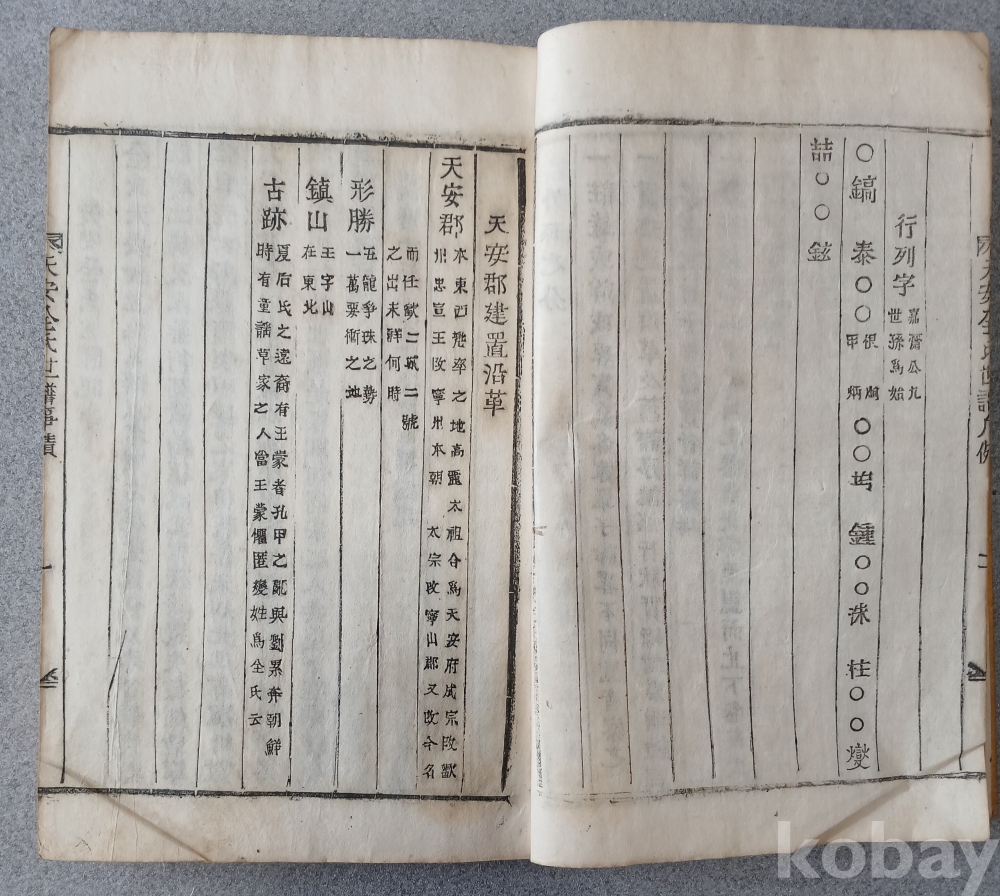 行列字
嘉齋公九
世孫爲始
○鎬 泰○○根 烱 ○○均 鍾○○洙 柱○○燮
甲 炳
喆○○鉉
天安郡建置沿革
天安郡
本東西兜率之地高麗太祖合爲天安府成宗改歡
州忠宣王改寧州本朝 太宗改寧山郡又改今名
而任歡二城二號
之出未詳何時
形勝
五龍爭珠之勢
一萬要衝之地
鎭山
王字山
在東北
古跡
夏后氏之遠裔有王蒙者孔甲之亂與劉累奔朝鮮
時有童謠草家之人當王蒙懼匿變姓爲全氏云
天安全氏世譜事蹟
kobay